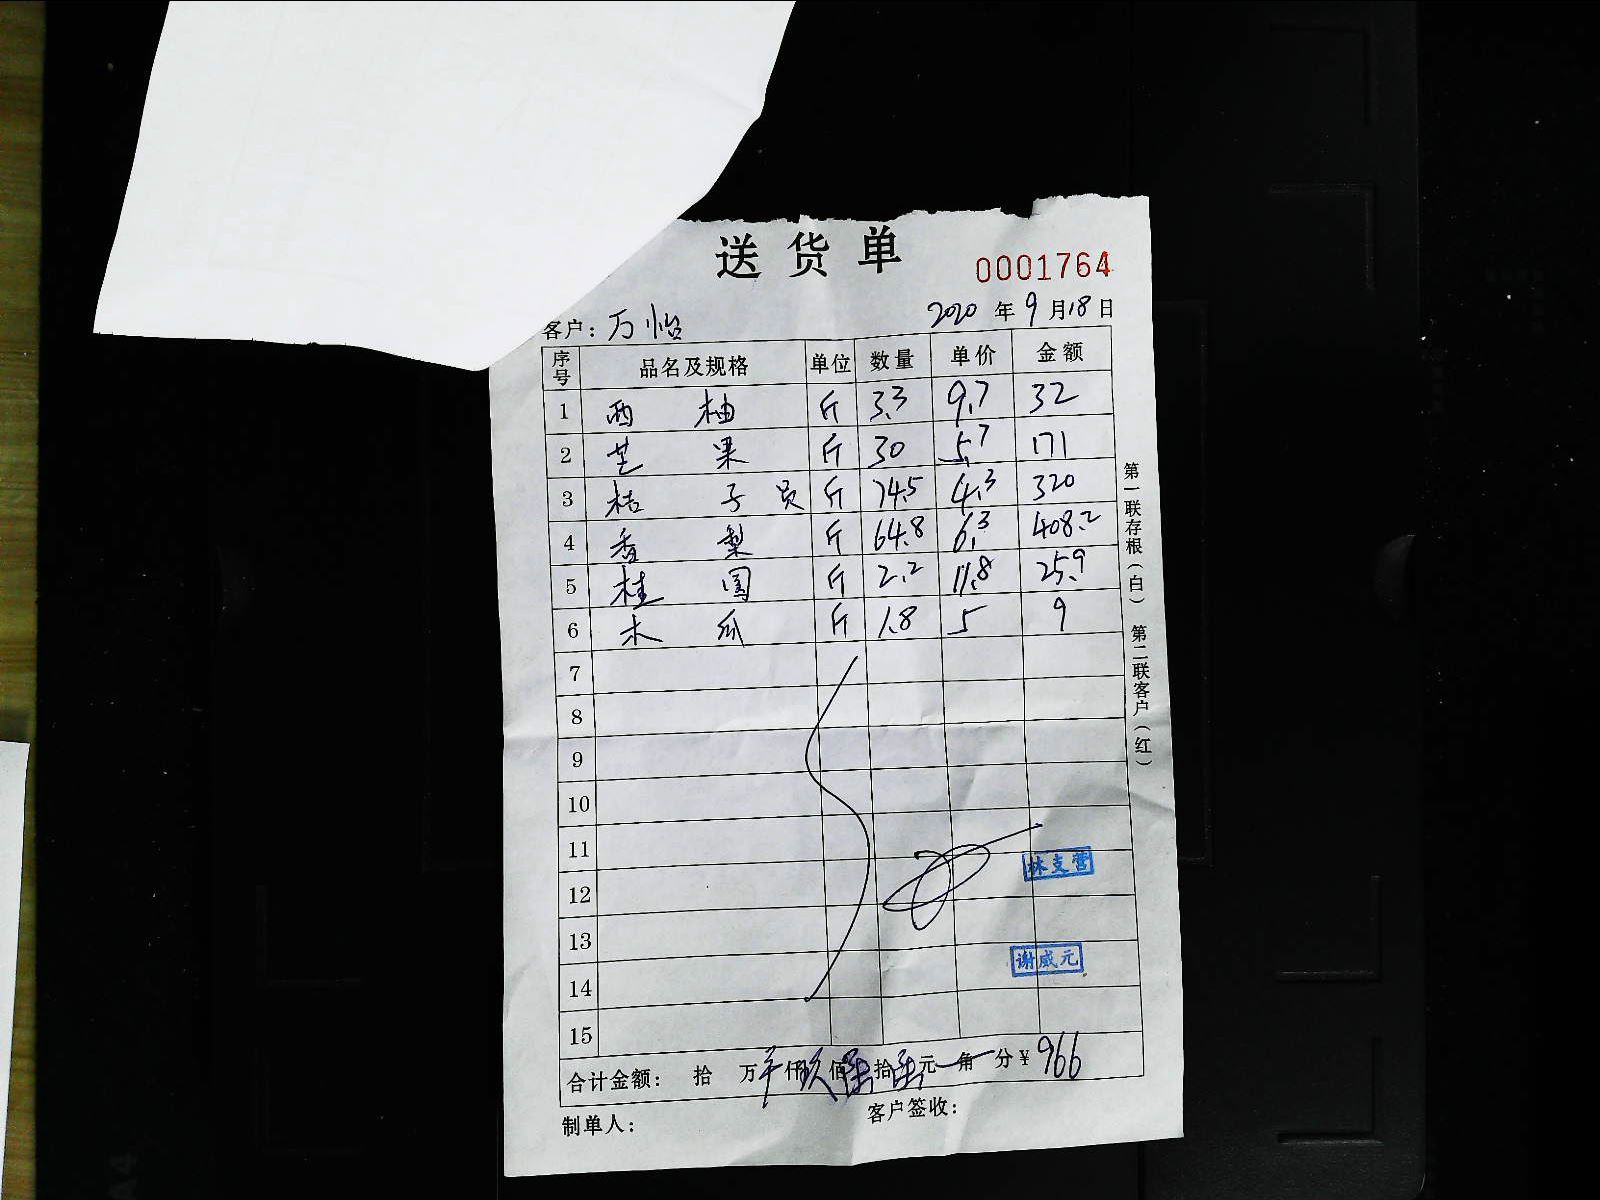 送货单
0001764
客户：万怡 2020年9月18日
序号 品名及规格 单位 数量 单价 金额
1 西柚 斤 3.3 9.7 32
2 芒果 斤 30 5.7 171
3 桔子 斤 74.5 4.3 320
4 香梨 斤 64.8 6.3 408.2
5 桂圆 斤 2.2 11.8 25.9
6 木瓜 斤 1.8 5 9
7
8
9
10
11
12
13
14
15
林支营
谢威元
合计金额： 拾 万 仟玖佰陆拾陆元 角 分￥966
制单人： 客户签收：
第一联存根（白） 第二联客户（红）